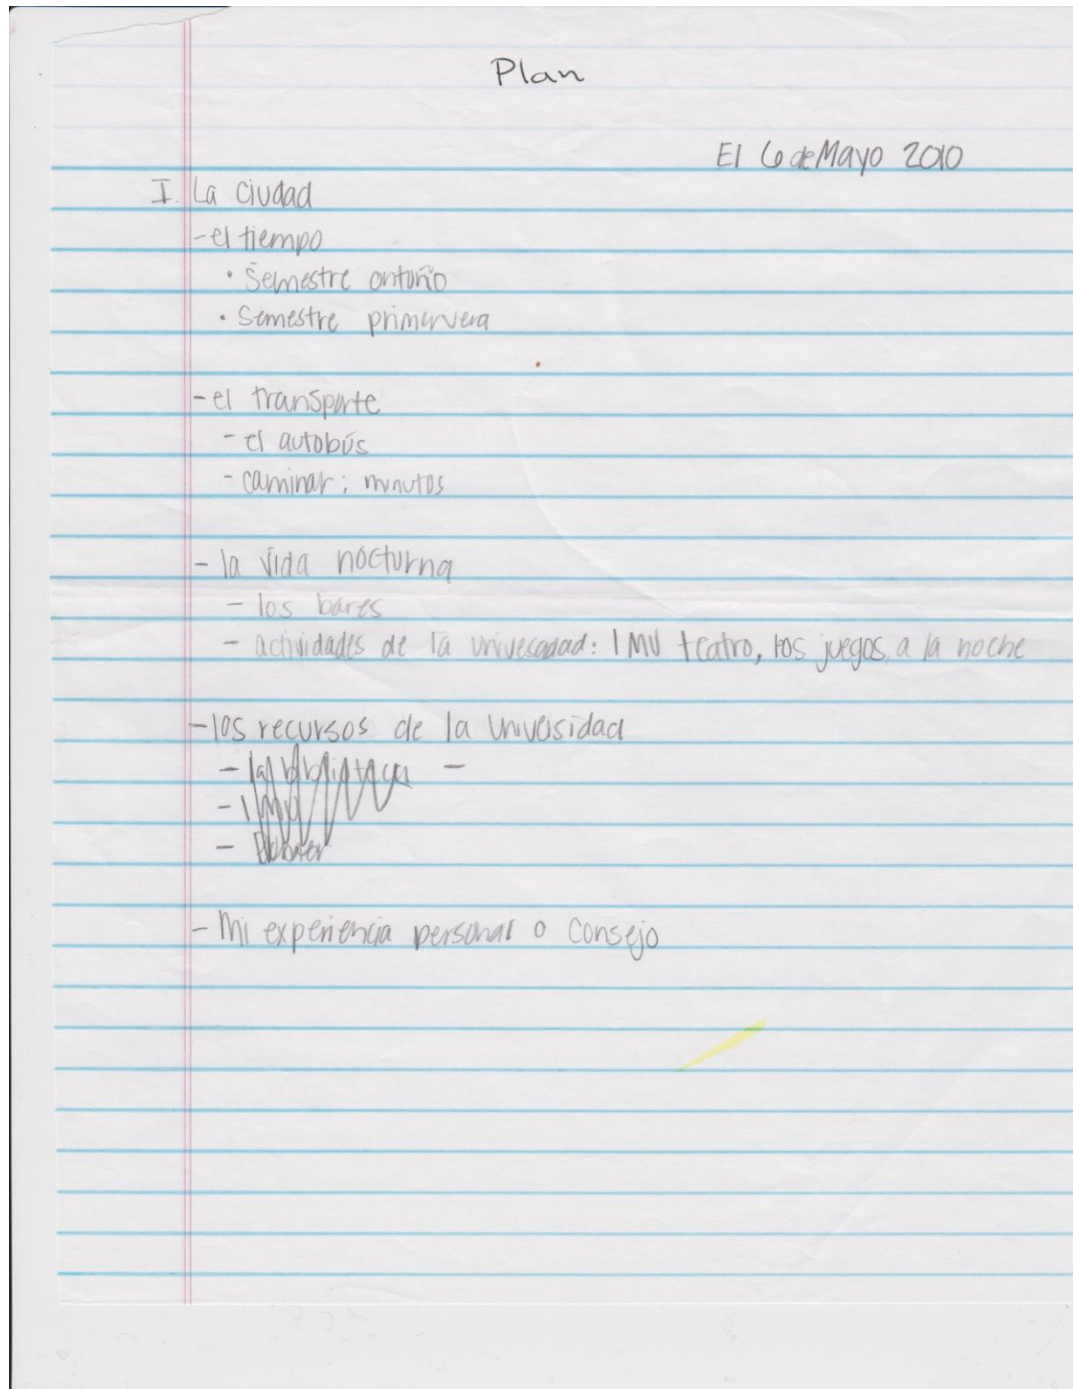 Plan
El 6 de Mayo 2010
I. La ciudad
- el tiempo
• Semestre ontoño
• Semestre primervera
- el transporte
- el autobús
- caminar; minutos
- la vida nocturna
- los bares
- actividades de la univesadad: IMU teatro, los juegos a la noche
- los recursos de la universidad
- la biblioteca -
- IMU
-
- Mi experiencia personal o consejo